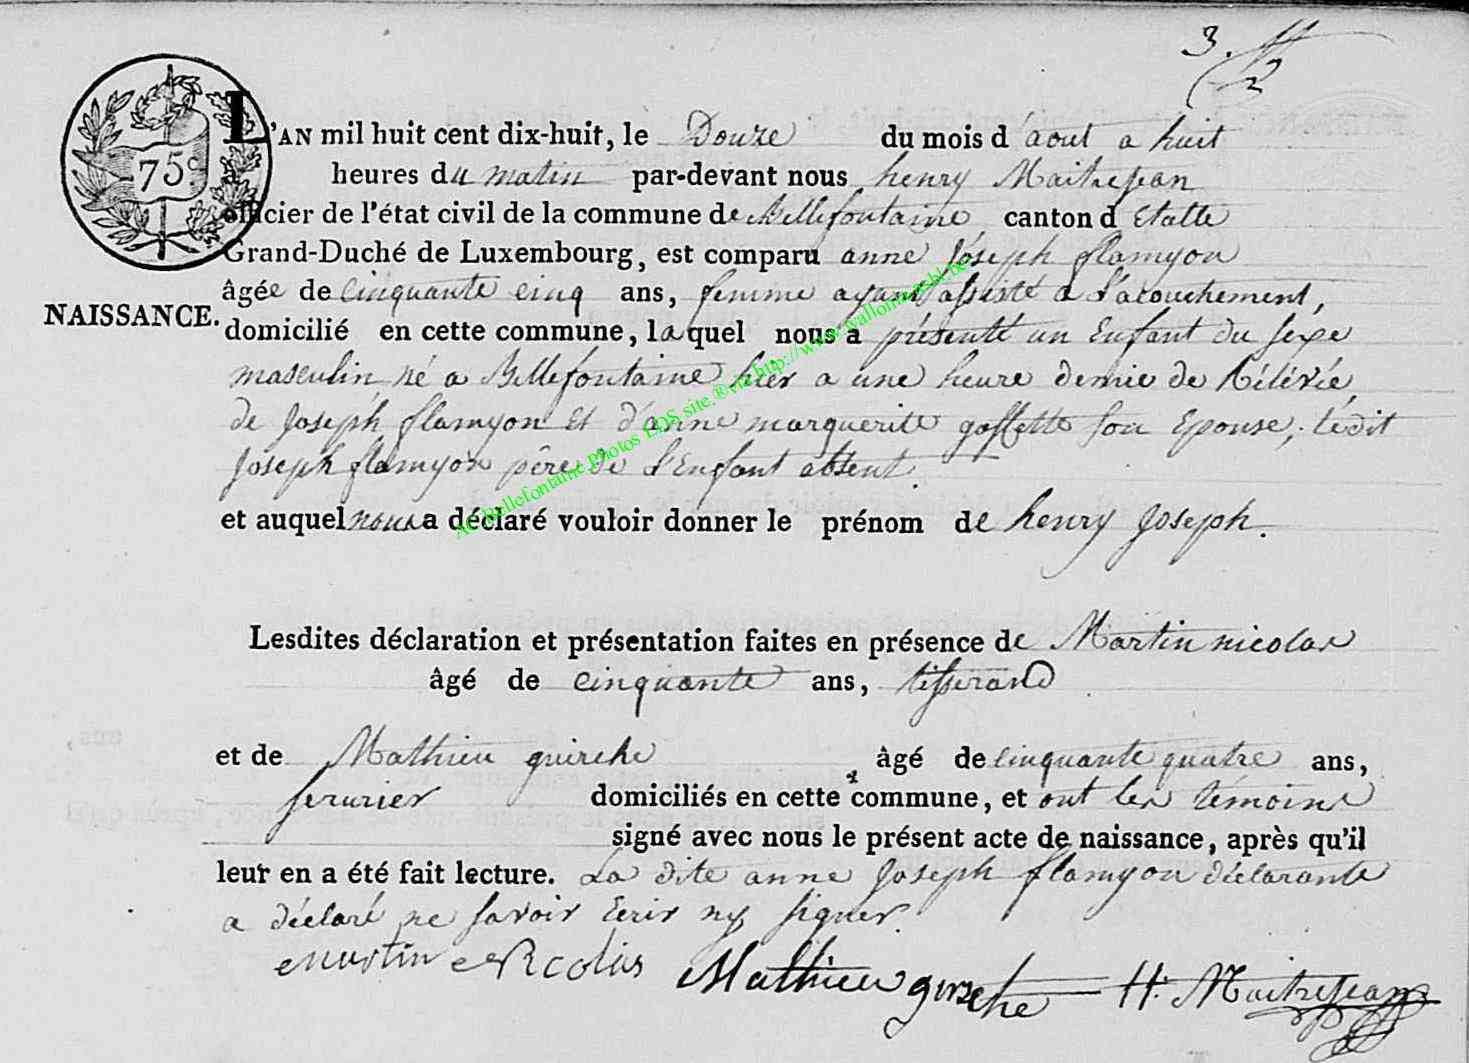 3.
75c
L'AN mil huit cent dix-huit, le Douze du mois d'aout a huit
heures du matin par-devant nous henry Maitrejean
officier de l'état civil de la commune de Bellefontaine canton d Etalle
Grand-Duché de Luxembourg, est comparu anne Joseph flamyon
âgée de cinquante cinq ans, femme ayant assisté a l'acouchement,
NAISSANCE. domicilié en cette commune, laquel nous a présenté un Enfant du sexe
masculin né a Bellefontaine hier a une heure demie de Rélévée,
de Joseph flamyon Et d'anne marguerite goffette son Epouse, ledit
Joseph flamyon père de l'Enfant absent.
et auquel nous a déclaré vouloir donner le prénom de henry Joseph.
Lesdites déclaration et présentation faites en présence de Martin nicolas
âgé de cinquante ans, tisserand
et de Mathieu guirche âgé de cinquante quatre ans,
serurier domiciliés en cette commune, et ont les témoins
signé avec nous le présent acte de naissance, après qu'il
leur en a été fait lecture. La dite anne Joseph flamyon déclarante
a déclaré ne savoir Ecrir ny signer.
martin Nicolas Mathieu girsche H. Maitrejean
AC Bellefontaine photos LDS site